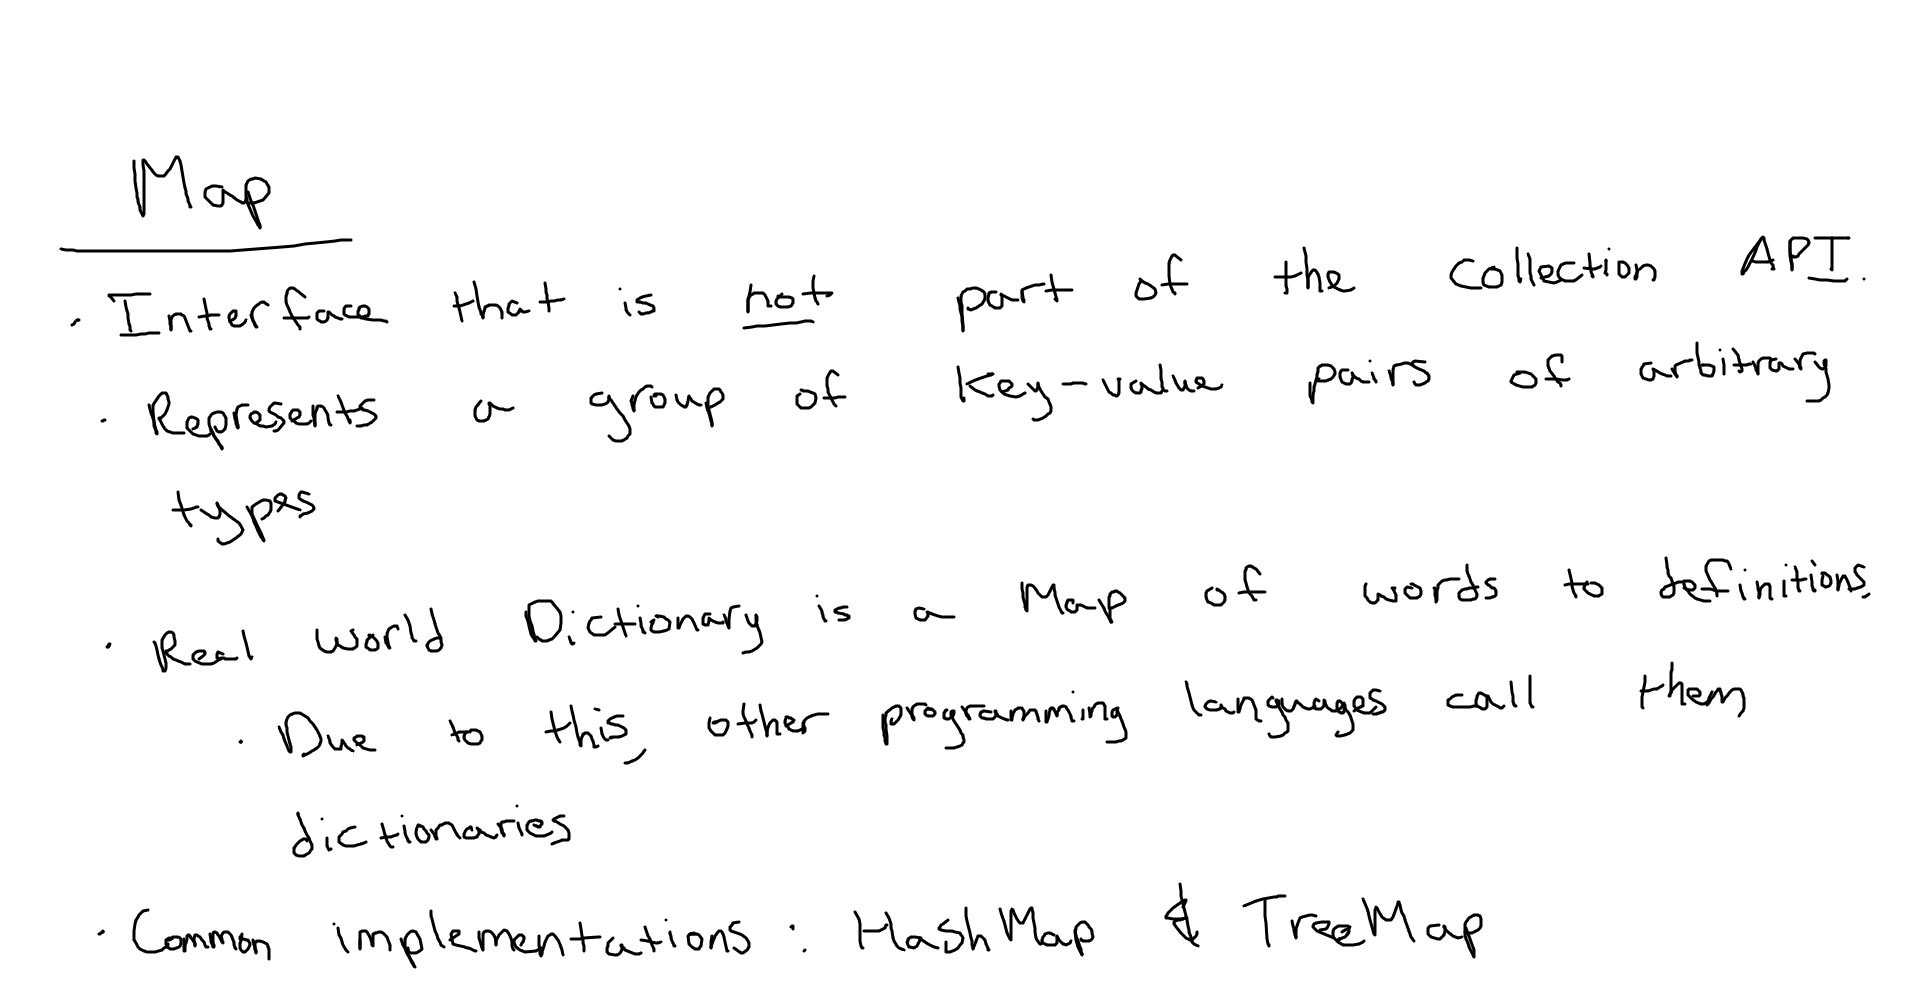 Map
· Interface that is not part of the Collection API.
· Represents a group of key-value pairs of arbitrary
types
· Real world Dictionary is a Map of words to definitions.
· Due to this, other programming languages call them
dictionaries
· Common implementations: HashMap & TreeMap